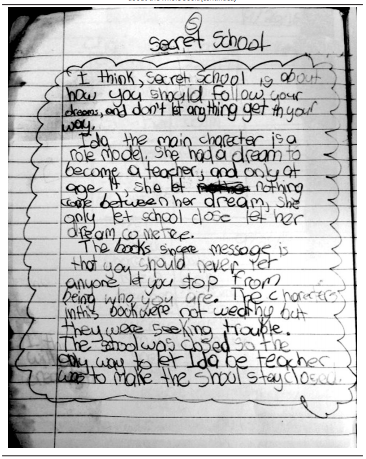 5
Secret School
I think, Secret School is about
how you should follow your
dreams, and don't let anything get in your
way.
Ida the main character is a
role model. She had a dream to
become a teacher, and only at
age 14, she let nothing
come between her dream, she
only let school close let her
dream come tree.
The books sincere message is
that you should never let
anyone let you stop from
being who you are. The characters
in this book were not wealthy but
they were seeking trouble.
The school was closed so the
only way to let Ida be teacher
was to make the shool stay closed.